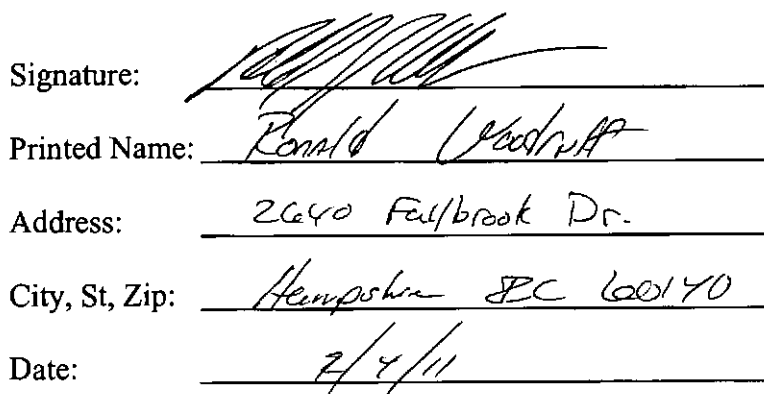 Signature:
Printed Name: Ronald Woodruff
Address: 2640 Fallbrook Dr.
City, St, Zip: Hampshire 60140
Date: 2/4/11